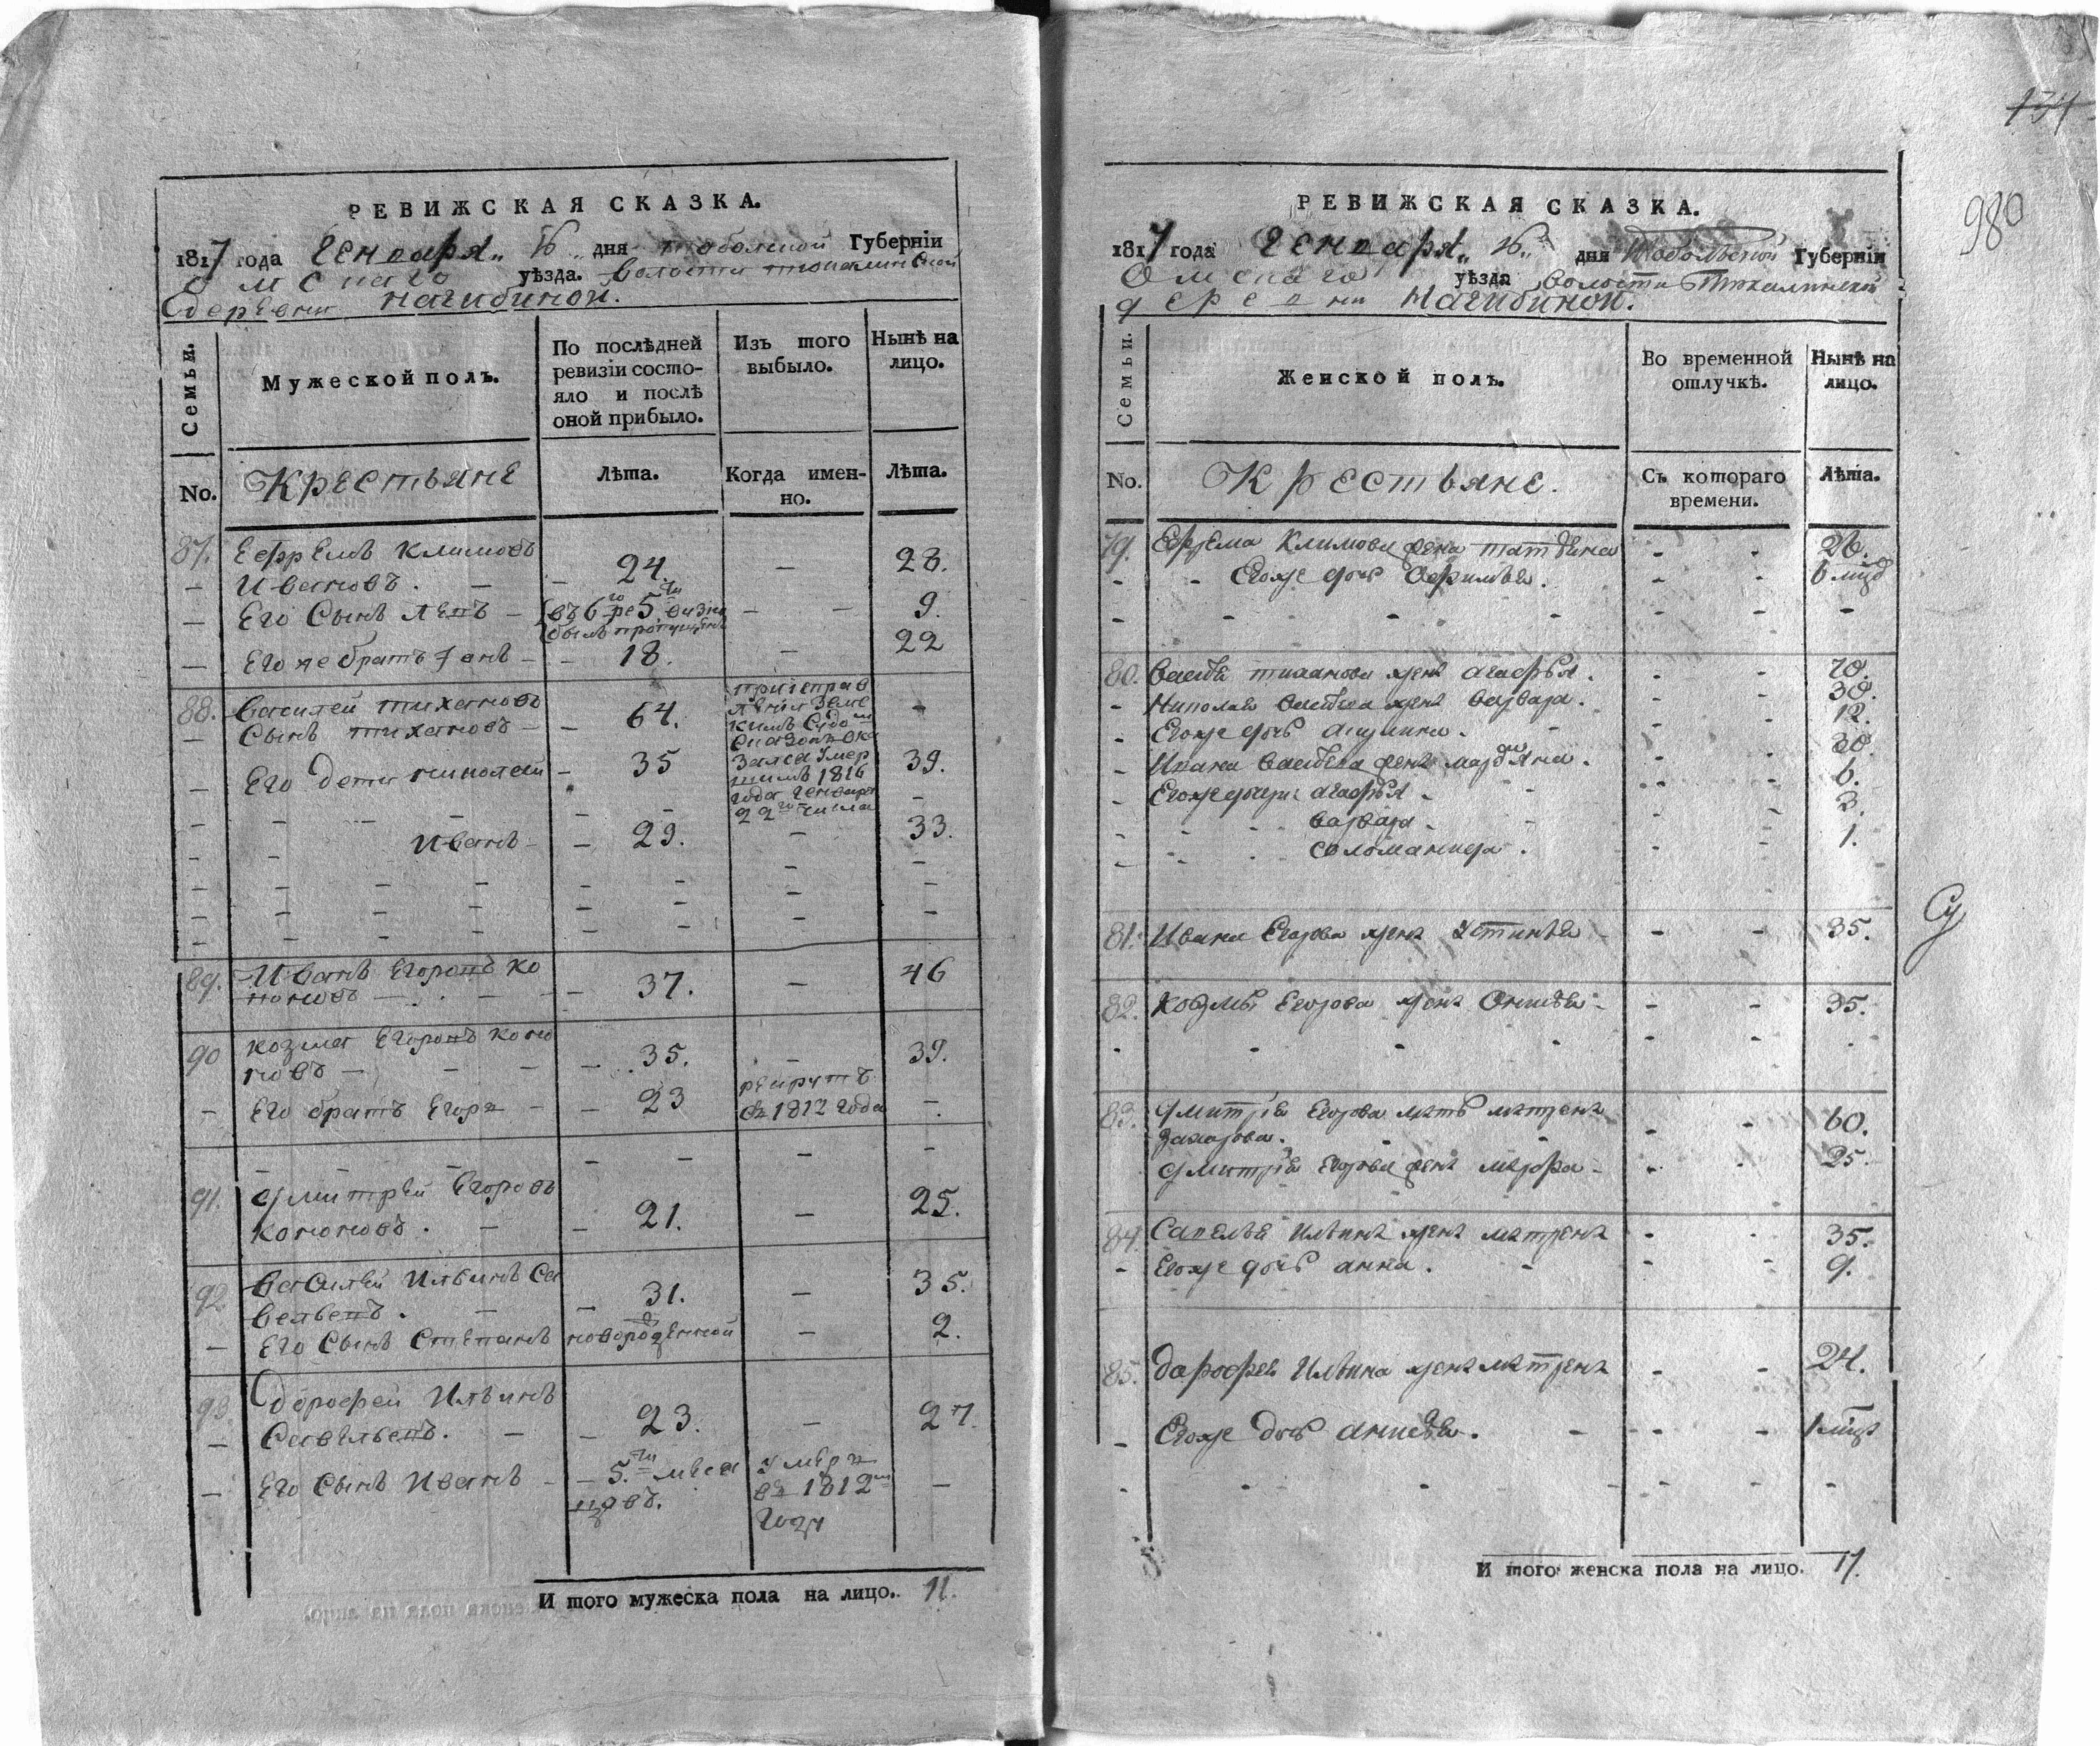 РЕВИЖСКАЯ СКАЗКА.
1817 года Генваря „16„ дня тобольской Губерніи
Омскаго уѣзда. Волости тюкалинской
деревни Нагибиной.
Семьи.
Мужеской полъ.
По послѣдней ревизіи состо-
яло и послѣ
оной прибыло.
Изъ того
выбыло.
Нынѣ на
лицо.
No.
Крестьяне
Лѣта.
Когда имен-
но.
Лѣта.
87. Ефремъ Климовъ
Ивановъ. 24. — 28.
Его Сынъ въ 6го ре 5ти визию — 9.
былъ
Его же братъ — 18. — 22
88. Василей тихановъ
Сынъ тихановъ — 64.
умер
1816
года Генваря
22го числа
Его дети николай — 35 39.
Иванъ — 29. — 33.
89. Иванъ Егоровъ Ко
ноновъ — 37. — 46
90 Козма Егоровъ Коно
новъ — 35. — 39.
Его братъ Егоръ — 23 рекрутъ
въ 1812 года —
91. Дмитрей Егоровъ
Кононовъ. — 21. — 25.
92 Василей Ильинъ Са
вельевъ. — 31. — 35.
Его Сынъ Степанъ новорожденной — 2.
93. Дорофей Ильинъ
Савельевъ. — 23. — 27.
Его Сынъ Иванъ — 5.ти меся
цовъ.
умеръ
въ 1812м
году
—
И того мужеска пола на лицо. 11.
134
980
РЕВИЖСКАЯ СКАЗКА.
1817 года Генваря „16„ дня Тобольской Губерніи
Омскаго уѣзда Волости Тюкалинской
деревни Нагибиной.
Семьи.
Женской полъ.
Во временной
отлучкѣ.
Нынѣ на
лицо.
No.
Крестьяне.
Съ котораго
времени.
Лѣта.
79. Ефрема Климова жена татьяна - - 26.
Егоже дочь - - 6
80. Василья тиханова жена агафья. - - 70.
Николая Васильева жена варвара. - - 38.
Егоже дочь акулина. - 12.
Ивана Васильева жена - - 30.
Егоже дочери агафья - - 6.
варвара - - 3.
соломанида. - - 1.
81. Ивана Егорова жена Устинья - - 35.
82. Козмы Егорова жена - - 35.
83. Дмитрея Егорова мать матрена
захарова. - - 60.
Дмитрея Егорова жена марфа - - 25.
84. Савелья Ильина жена матрена - - 35.
Егоже дочь анна. - - 9.
85. Дарофея Ильина жена матрена - - 24.
Егоже дочь - - 1
Су
И того женска пола на лицо. 17.